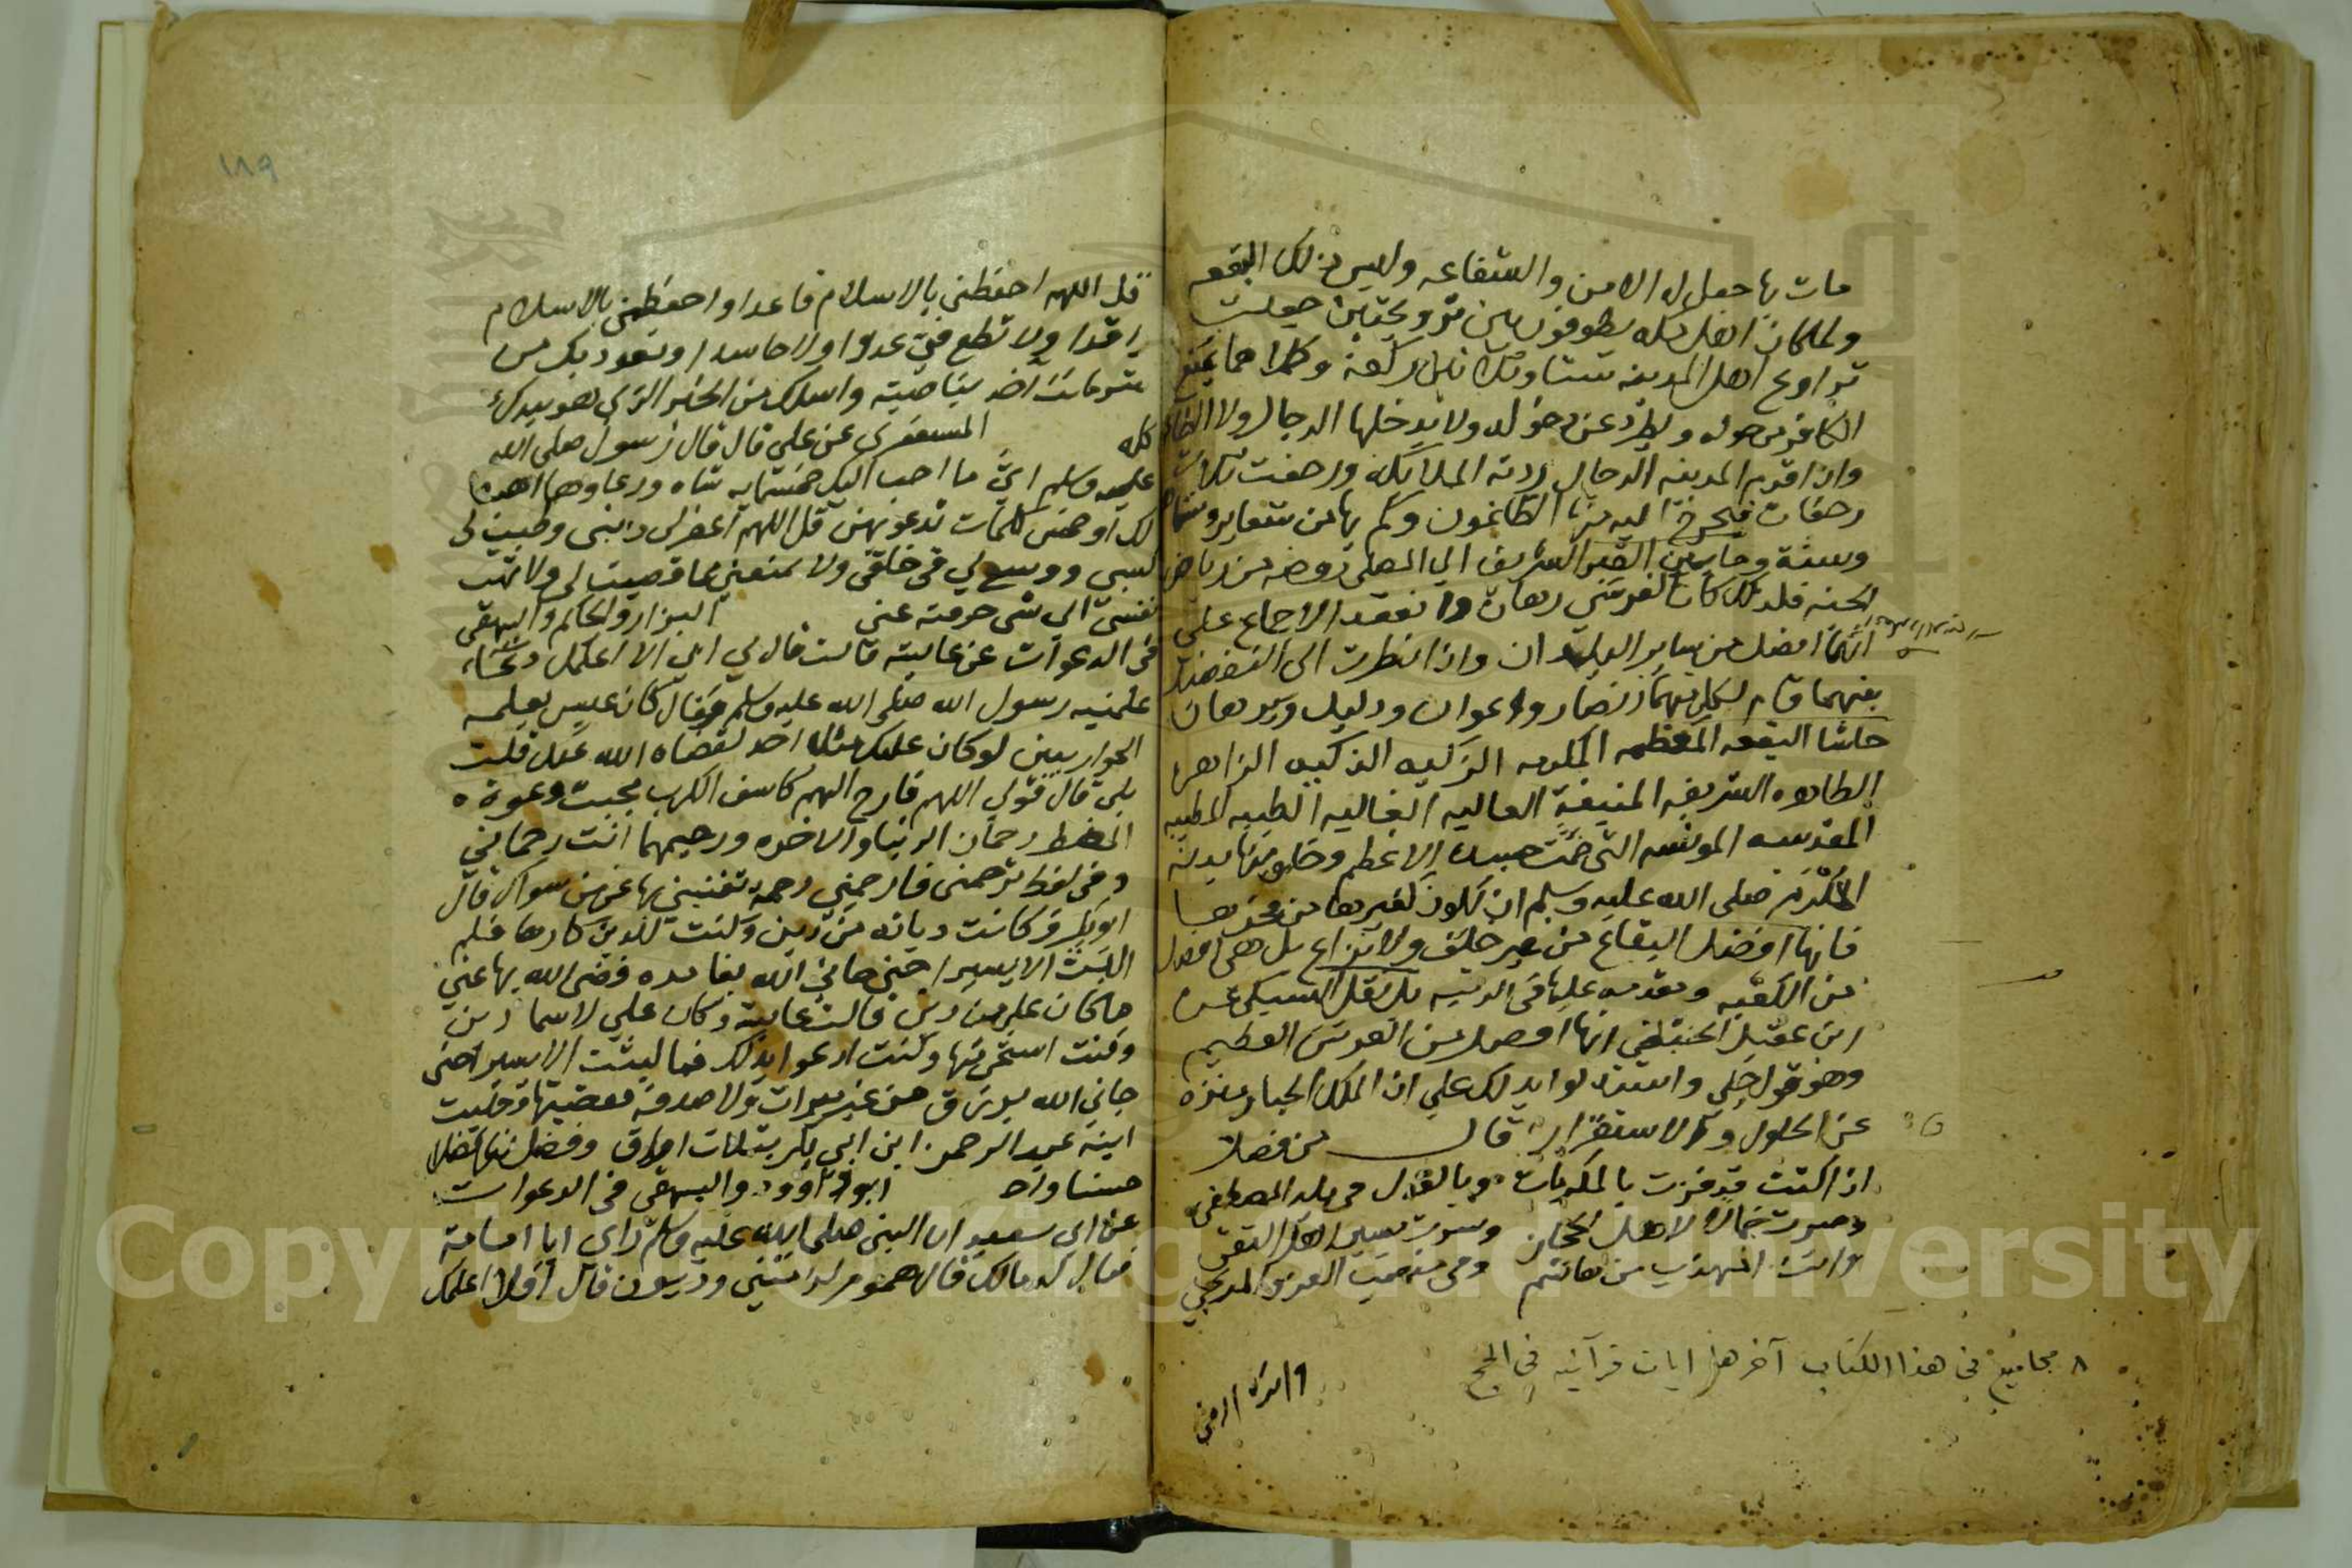 مات بها جعل له الامن والشفاعه وليس ذلك البقعه
ولما كان اهل مكه يطوفون بين ترويحتين جعلت
تراويح اهل المدينه ستا وثلاثين ركعة وكلاهما يمنع
الكافر من حوله ويطرد عن دخوله ولا يدخلها الدجال ولا الطاعون
واذا قدم المدينه الدجال ردته الملايكه ورجفت ثلاث
رجفات فيخرج اليه منها الظالمون وكم بها من شعاير
وسنة وما بين القبر الشريف الي المصلى روضه من رياض
الجنه فلذلك كانا كفرسي رهان وانعقد الاجماع على
انهما افضل من ساير البلدان واذا نظرت الى التفضيل
بينهما قام لكل منهما انصار واعوان ودليل وبرهان
حاشا البقعه المعظمه المكرمه الزكيه الذكيه الزاهره
الطاهره الشريفه المنيفة العاليه الغاليه الطيبه المطيبه
المقدسه المونسه التي ضمت جسده الاعظم وحلو منها بدنه
المكرم صلى الله عليه وسلم ان يكون لغيرها من
فانها افضل البقاع من غير خلف ولا نزاع بل هي افضل
من الكعبه ومقدمه عليها في الرتبه بل نقل السبكي عن
ابن عقيل الحنبلي انها افضل من العرش العظيم
وهو قول جلي واستدلوا بذلك علي ان الملك الجبار منزه
عن الحلول والاستقرار قال من فضلا
اذا كنت قد فزت بالمكرمات وبالقول في بلد المصطفى
وصرت جمالا لاهل الحجاز وسرت بسير اهل التقى
وانت المهذب من هاشم ومن
٨ مجاميع في هذا الكتاب آخرها ايات قرآنيه في الحج
١٨٩
قل اللهم احفظني بالاسلام قاعدا واحفظني بالاسلام
راقدا ولا تطع في عدوا ولا حاسدا ونعوذ بك من
شر ما انت اخذ بناصيته واسلك من الخير الذي هو بيدك
كله المستغفري عن علي قال قال رسول صلى الله
عليه وسلم اي ما احب اليك خمسمايه شاه ورعاوها اهبها
لك او خمس كلمات تدعو بهن قل اللهم اغفر لي ذنبي وطيب لي
كسبي ووسع لي في خلقي ولا تمنعني مما قضيت لي ولا تذهب
نفسي الى شي حرمته عني البزار والحاكم والبيهقي
في الدعوات عن عايشه قالت قال لي ابي الا اعلمك دعاء
علمنيه رسول الله صلى الله عليه وسلم وقال كان عيسى يعلمه
الحواريين لو كان عليك مثل احد لقضاه الله عنك قلت
بلى قال قولي اللهم فارج الهم كاشف الكرب مجيب دعوة
المضطر رحمان الدنيا والاخره ورحيمهما انت رحماني
وفي لفظ ترحمني فارحمني رحمة تغنيني بها عن من سواك قال
ابو بكر وكانت دبابه من دين وكنت للدين كارها فلم
البث الا يسيرا حتى جاني الله بفايده فقضى الله بها عني
ما كان علي من دين قالت عايشه وكان علي لاسما دين
وكنت استحي منها وكنت ادعوا بذلك فما لبثت الا يسيرا حتى
جاني الله برزق من غير ميراث ولا صدقه فقضيتها وحليت
ابنة عبد الرحمن ابن ابي بكر بثلاث اواق وفضل لنا فضلا
حسنا واحد ابو داوود والبيهقي في الدعوات
عن ابي سعيد ان النبي صلى الله عليه وسلم راى ابا امامة
فقال له مالك قال هموم لزمتني وديون قال افلا اعلمك